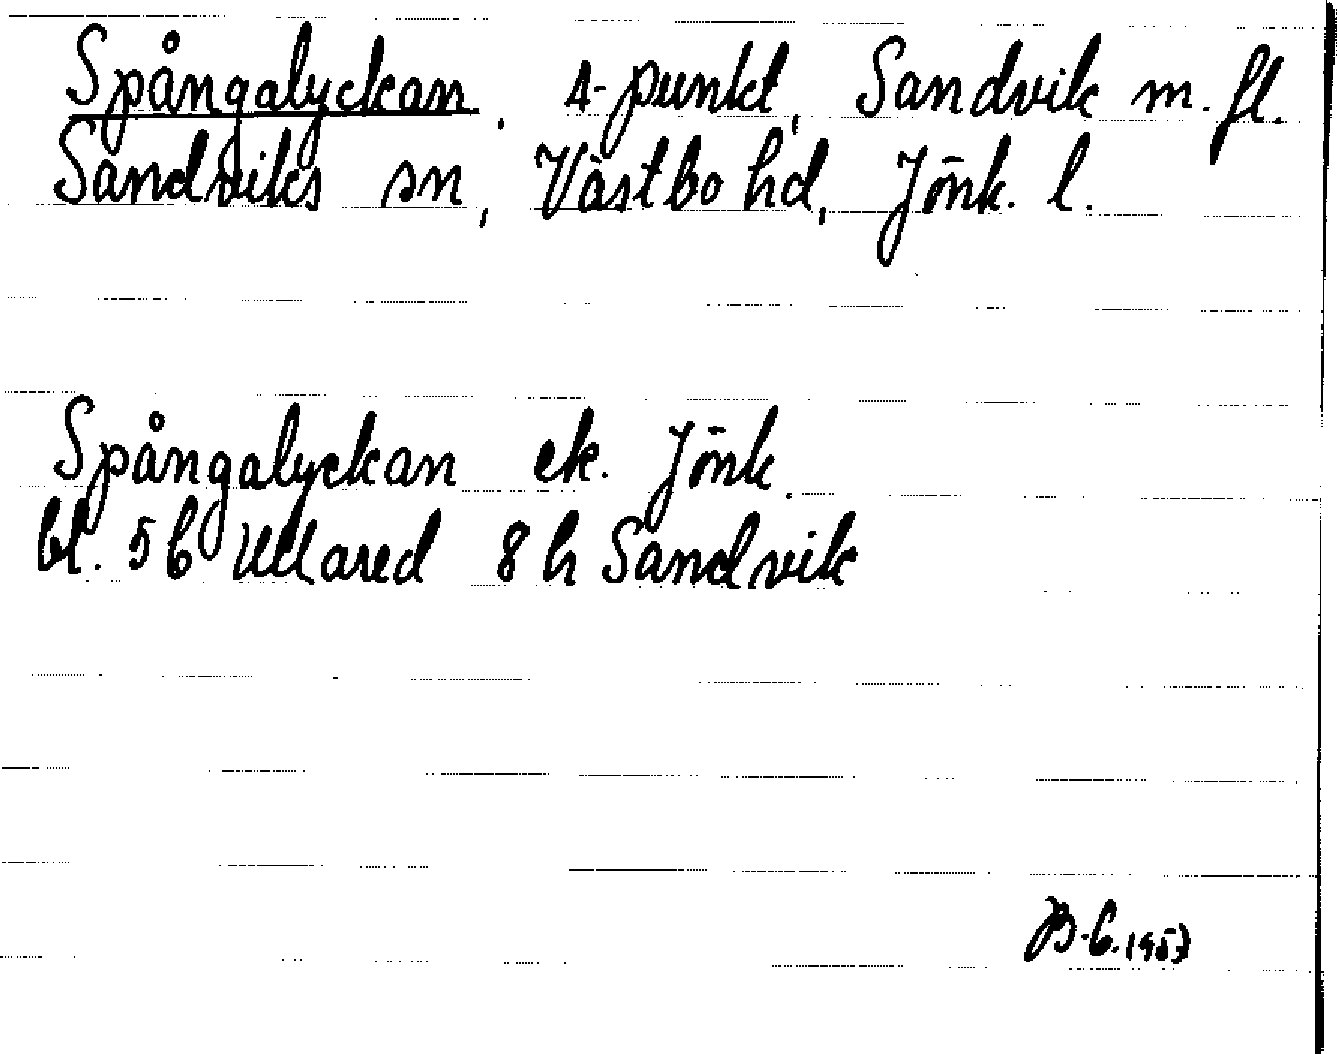 Spångalyckan, Δ-punkt, Sandvik m. fl.
Sandviks sn, Västbo hd, Jönk. l.
Spångalyckan ek. Jönk.
bl. 5 b Ullared 8 h Sandvik